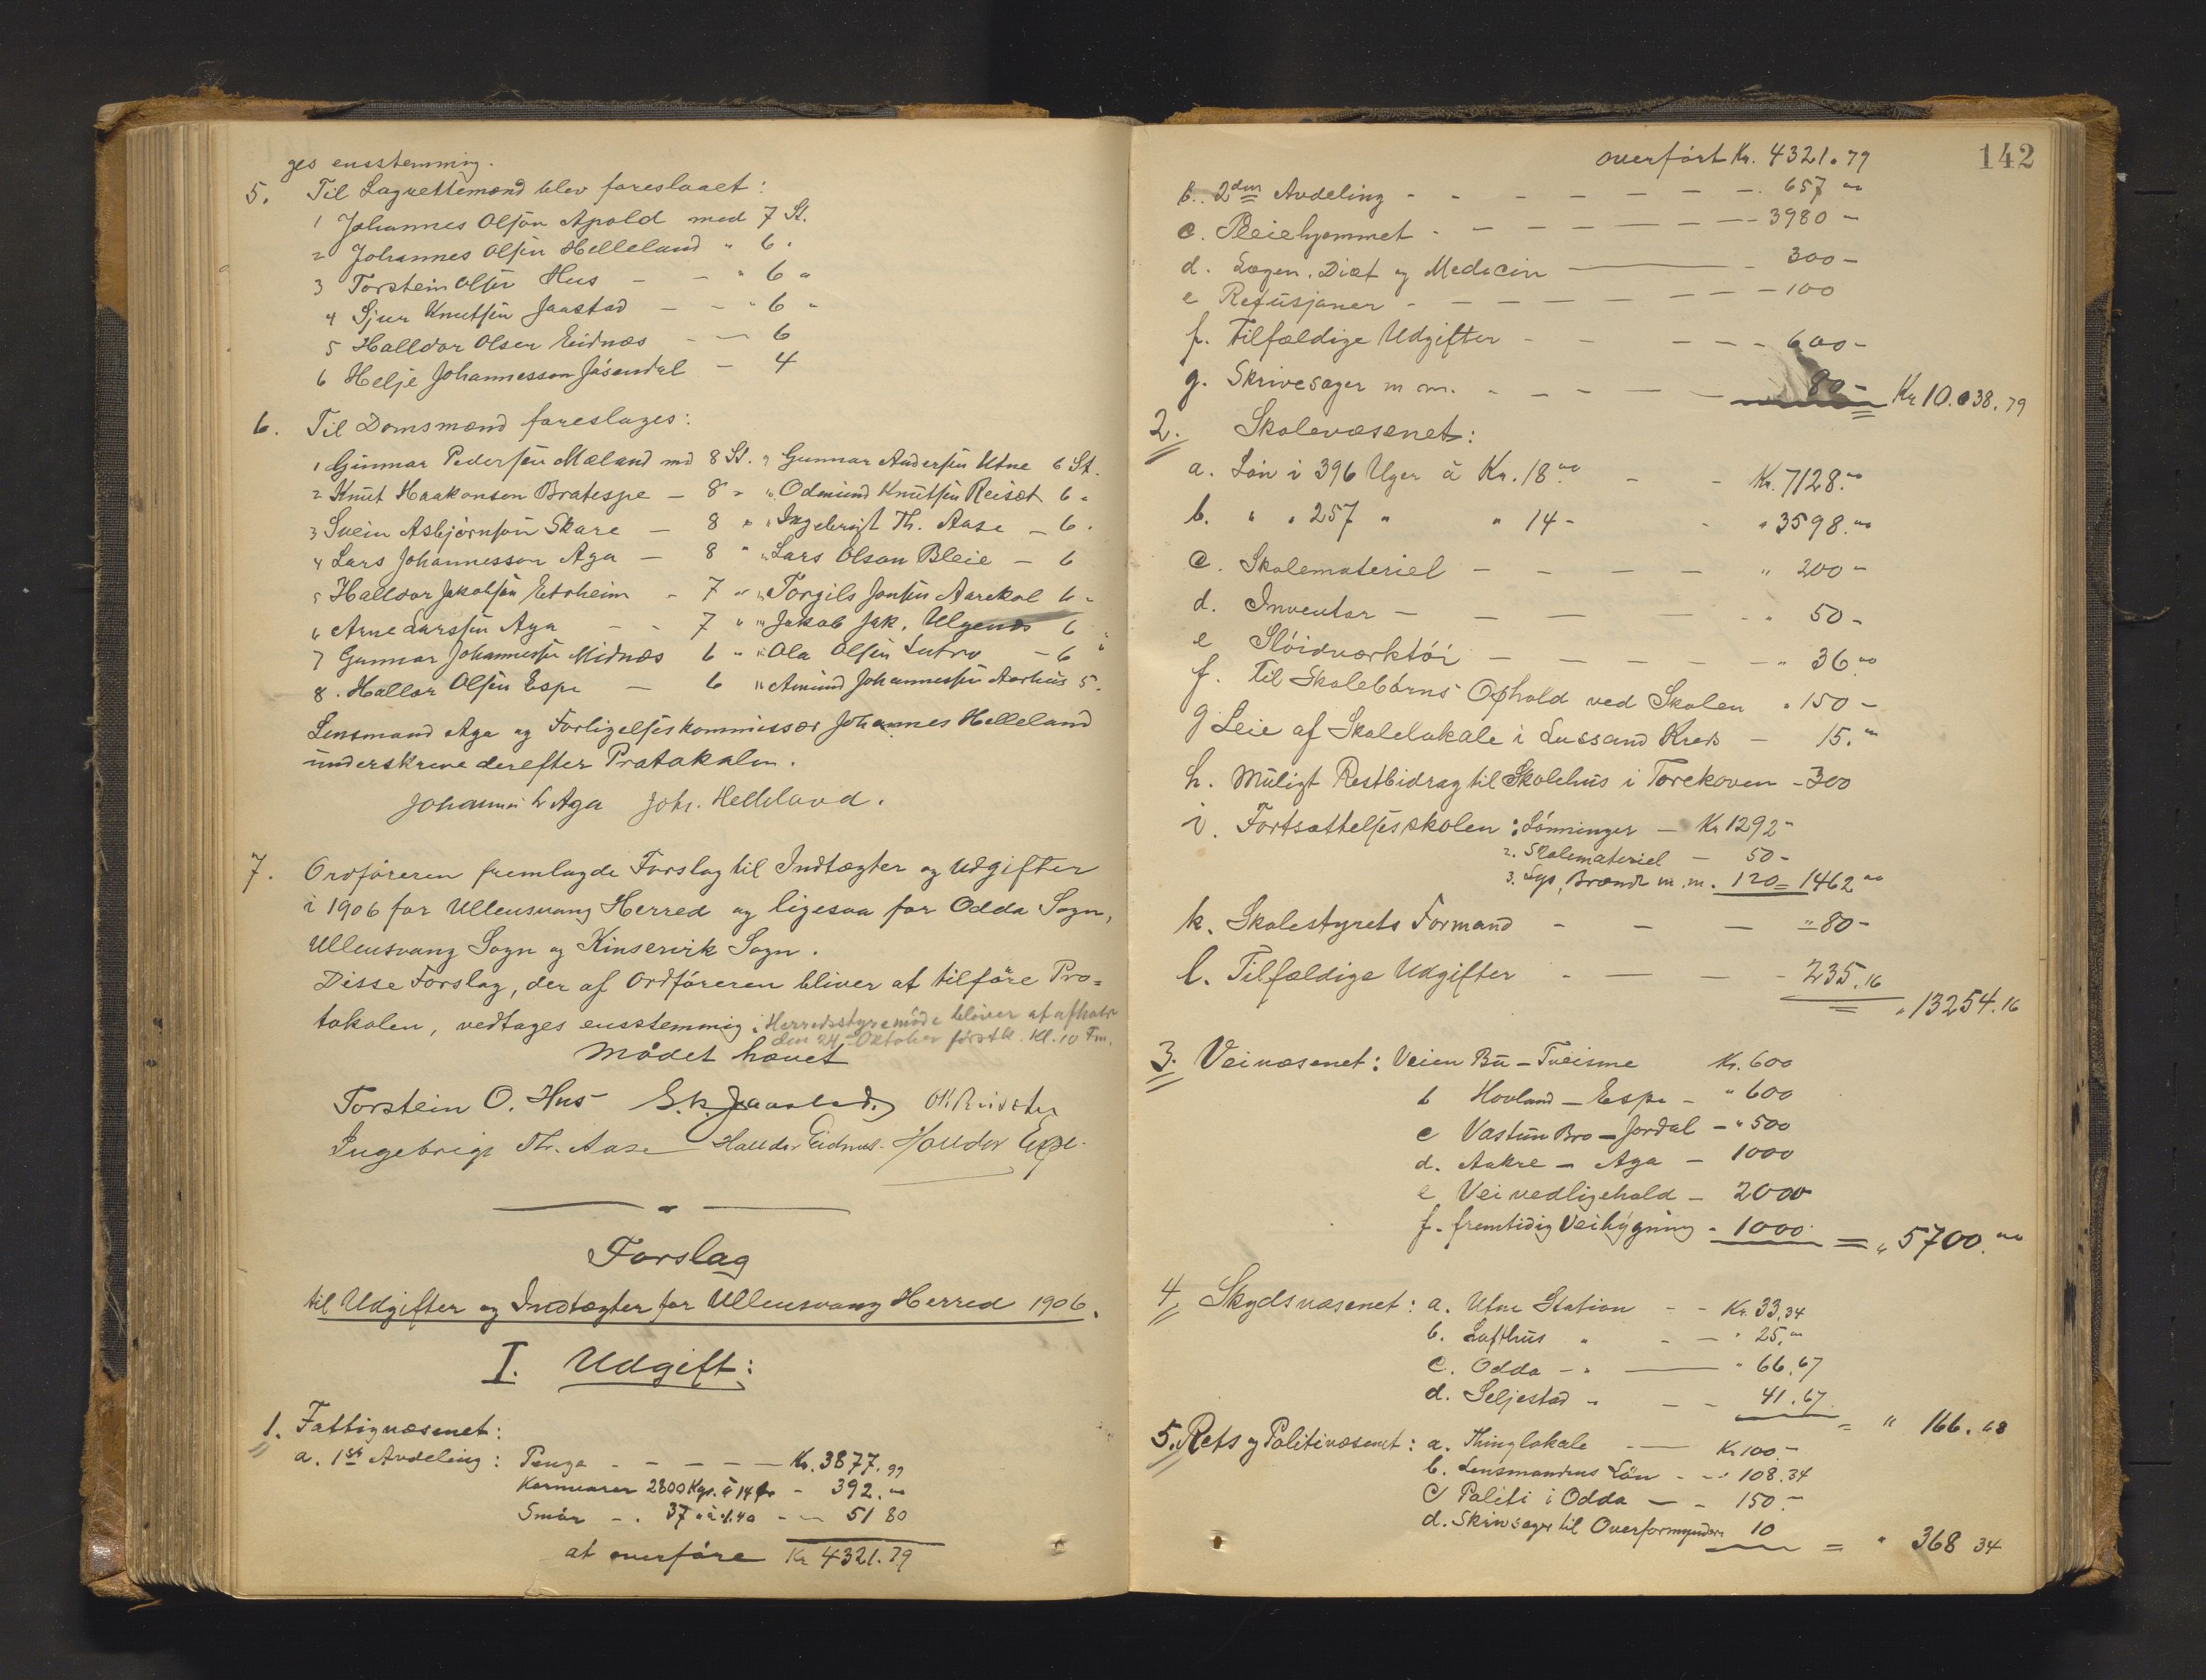 ges ensstemmig.
5. Til Lagrettemænd blev foreslaaet:
1 Johannes Olsøn Apold med 7 St.
2 Johannes Olsen Helleland " 6 "
3 Torstein Olsen Hus - - " 6 "
4 Sjur Knutsen Jaastad - - " 6 "
5 Halldor Olsen Eidnæs - - 6
6 Helje Johannesson Jåsendal - 4
6. Til Domsmænd foreslages:
1 Gunnar Pedersen Mæland md 8 St. 9 Gunnar Andersen Utne 6 St.
2 Knut Haakonson Bratespe - 8 " 10 Odmund Knutsen Reisæt 6 "
3 Svein Asbjørnsøn Skare - 8 " 11 Ingebrigt Th. Aase - 6 "
4 Lars Johannesson Aga - 8 " 12 Lars Olson Bleie - 6
5 Halldor Jakobsøn Eitrheim - 7 " 13 Torgils Jonsen Aarekol 6 "
6 Arne Larssen Aga - - 7 " 14 Jakob Jak. Ulgenæs 6 "
7 Gunnar Johannessen Midnæs 6 " 15 Ola Olsen Lutro - 6 "
8. Hallor Olsen Espe - 6 16 Amund Johannessen Aarhus 5.
Lensmand Aga og Forligelseskommissær Johannes Helleland
underskreve derefter Protokolen.
Johannes L Aga Johs. Helleland.
7. Ordføreren fremlagde Forslag til Indtægter og Udgifter
i 1906 for Ullensvang Herred og ligesaa for Odda Sogn,
Ullensvang Sogn og Kinservik Sogn.
Disse Forslag, der af Ordføreren bliver at tilføre Pro=
tokolen, vedtages ensstemmig. Herredsstyremøde bliver at afholde
den 24 Oktober førstk. Kl. 10 Fm.
Mødet hævet
Torstein O. Hus S. K. Jaastad. O. K. Reisæter
Ingebrigt Th. Aase Halldor Eidnæs. Halldor Espe.
Forslag
til Udgifter og Indtægter for Ullensvang Herred 1906.
I. Udgift:
1. Fattigvæsenet:
a. 1ste Avdeling: Penge - - - - - Kr. 3877.99
Kornvarer 2800 Kgr. à 14 ø - 392.00
Smør - . 37 " à 1.40 - - 51 80
at overføre Kr 4321.79
142
overført Kr. 4321.79
b. 2den Avdeling - - - - - - - 657 00
c. Pleiehjemmet - - - - - - - 3980 -
d. Lægen. Diæt og Medicin - 300 -
e Refusjoner - - - - - - - 100
f. Tilfældige Udgifter - - - - - 600 -
g. Skrivesager m m. - - - - - 80 - Kr 10.038.79
2. Skolevæsenet:
a. Løn i 396 Uger à Kr. 18.00 - - Kr. 7128.00
b. " " 257 " " 14 - - " 3598.00
c. Skolemateriel - - - - " 200 -
d. Inventar - - - - " 50 -
e Sløidværktøi - - - - - " 36.00
f. Til Skolebørns Ophold ved Skolen " 150 -
g Leie af Skolelokale i Lussand Kreds - 15.00
h. Muligt Restbidrag til Skolehus i Torekoven - 300
i. Fortsættelsesskolen: Lønninger - Kr 1292 -
2. Skolemateriel - 50 -
3. Lys, Brænde m. m. 120 = 1462 00
k. Skolestyrets Formand - - - " 80 -
l. Tilfældige Udgifter - - - 235.16
" 13254.16
3. Veivæsenet: Veien Bu - Tveisme Kr. 600
b Hovland - Espe - " 600
c Vastun Bro - Jordal - " 500
d. Aakre - Aga - 1000
e Vei vedligehold - 2000
f. fremtidig Veibygning - 1000 = " 5700.00
4. Skydsvæsenet: a. Utne Station - - Kr. 33.34
b. Lofthus " - - " 25.00
c. Odda - " - " 66.67
d. Seljestad " - - 41.67
= " 166.68
5. Rets og Politivæsenet: a. Thinglokale - Kr 100 -
b. Lensmandens Løn - - " 108.34
c Politi i Odda - - 150 -
d. Skrivsager til Overformynderi 10
= " 368 34